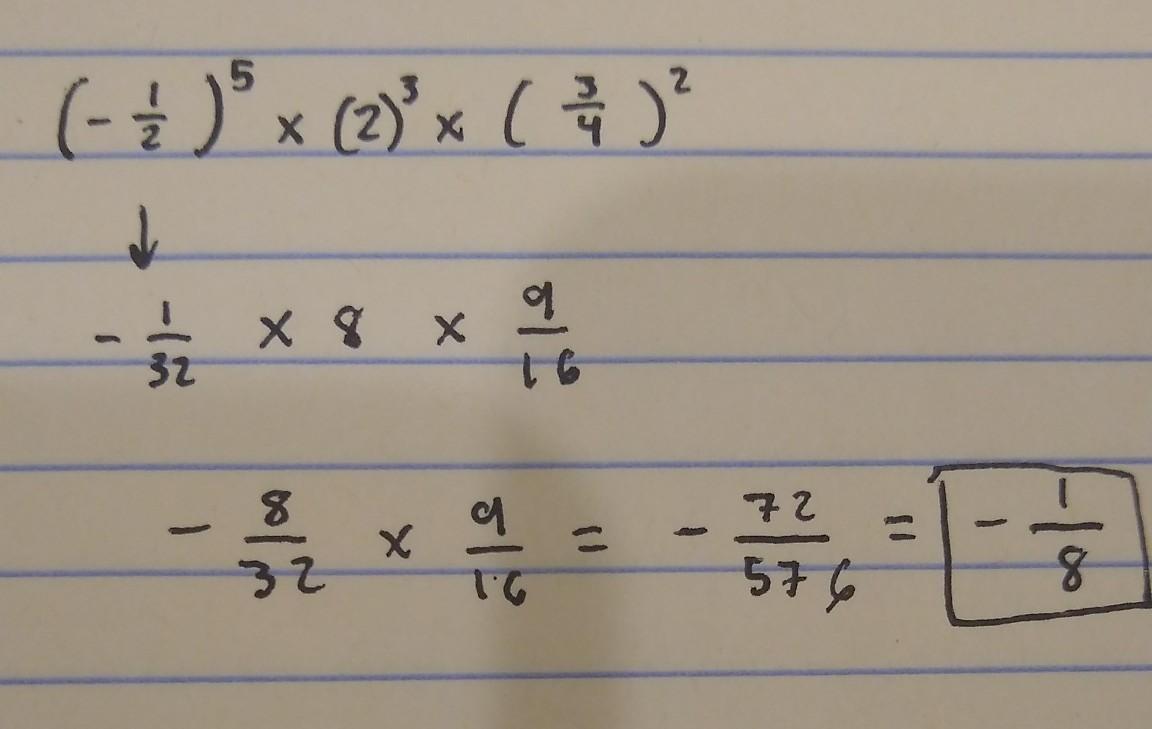 (-1/2)^5 × (2)^3 × (3/4)^2
↓
-1/32 × 8 × 9/16
-8/32 × 9/16 = -72/576 = -1/8